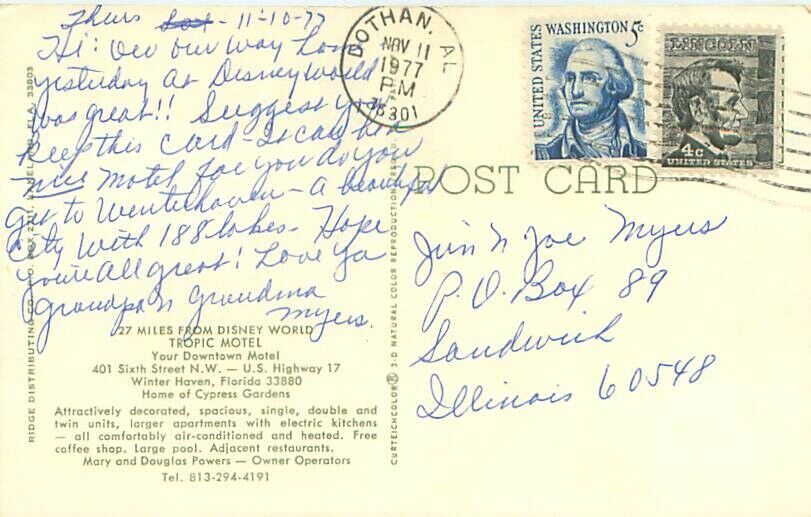 Thurs - 11-10-77
Hi: On our way home
yesterday at Disney World
was great!! Suggest you
keep this card - It can be a
nice motel for you do you
get to Winterhaven - A beautiful
City With 188 lakes - Hope
you're All great! Love Ya
Grandpa n Grandma
Myers.
27 MILES FROM DISNEY WORLD
TROPIC MOTEL
Your Downtown Motel
401 Sixth Street N.W. — U.S. Highway 17
Winter Haven, Florida 33880
Home of Cypress Gardens
Attractively decorated, spacious, single, double and
twin units, larger apartments with electric kitchens
— all comfortably air-conditioned and heated. Free
coffee shop. Large pool. Adjacent restaurants.
Mary and Douglas Powers — Owner Operators
Tel. 813-294-4191
RIDGE DISTRIBUTING CO., P.O. BOX FLA. 33803
CURTEICHCOLOR® 3-D NATURAL COLOR REPRODUCTION
DOTHAN, AL
NOV 11
1977
PM
36301
UNITED STATES
WASHINGTON 5c
LINCOLN
4c
UNITED STATES
POST CARD
Jim N Joe Myers
P.O. Box 89
Sandwich
Illinois 60548